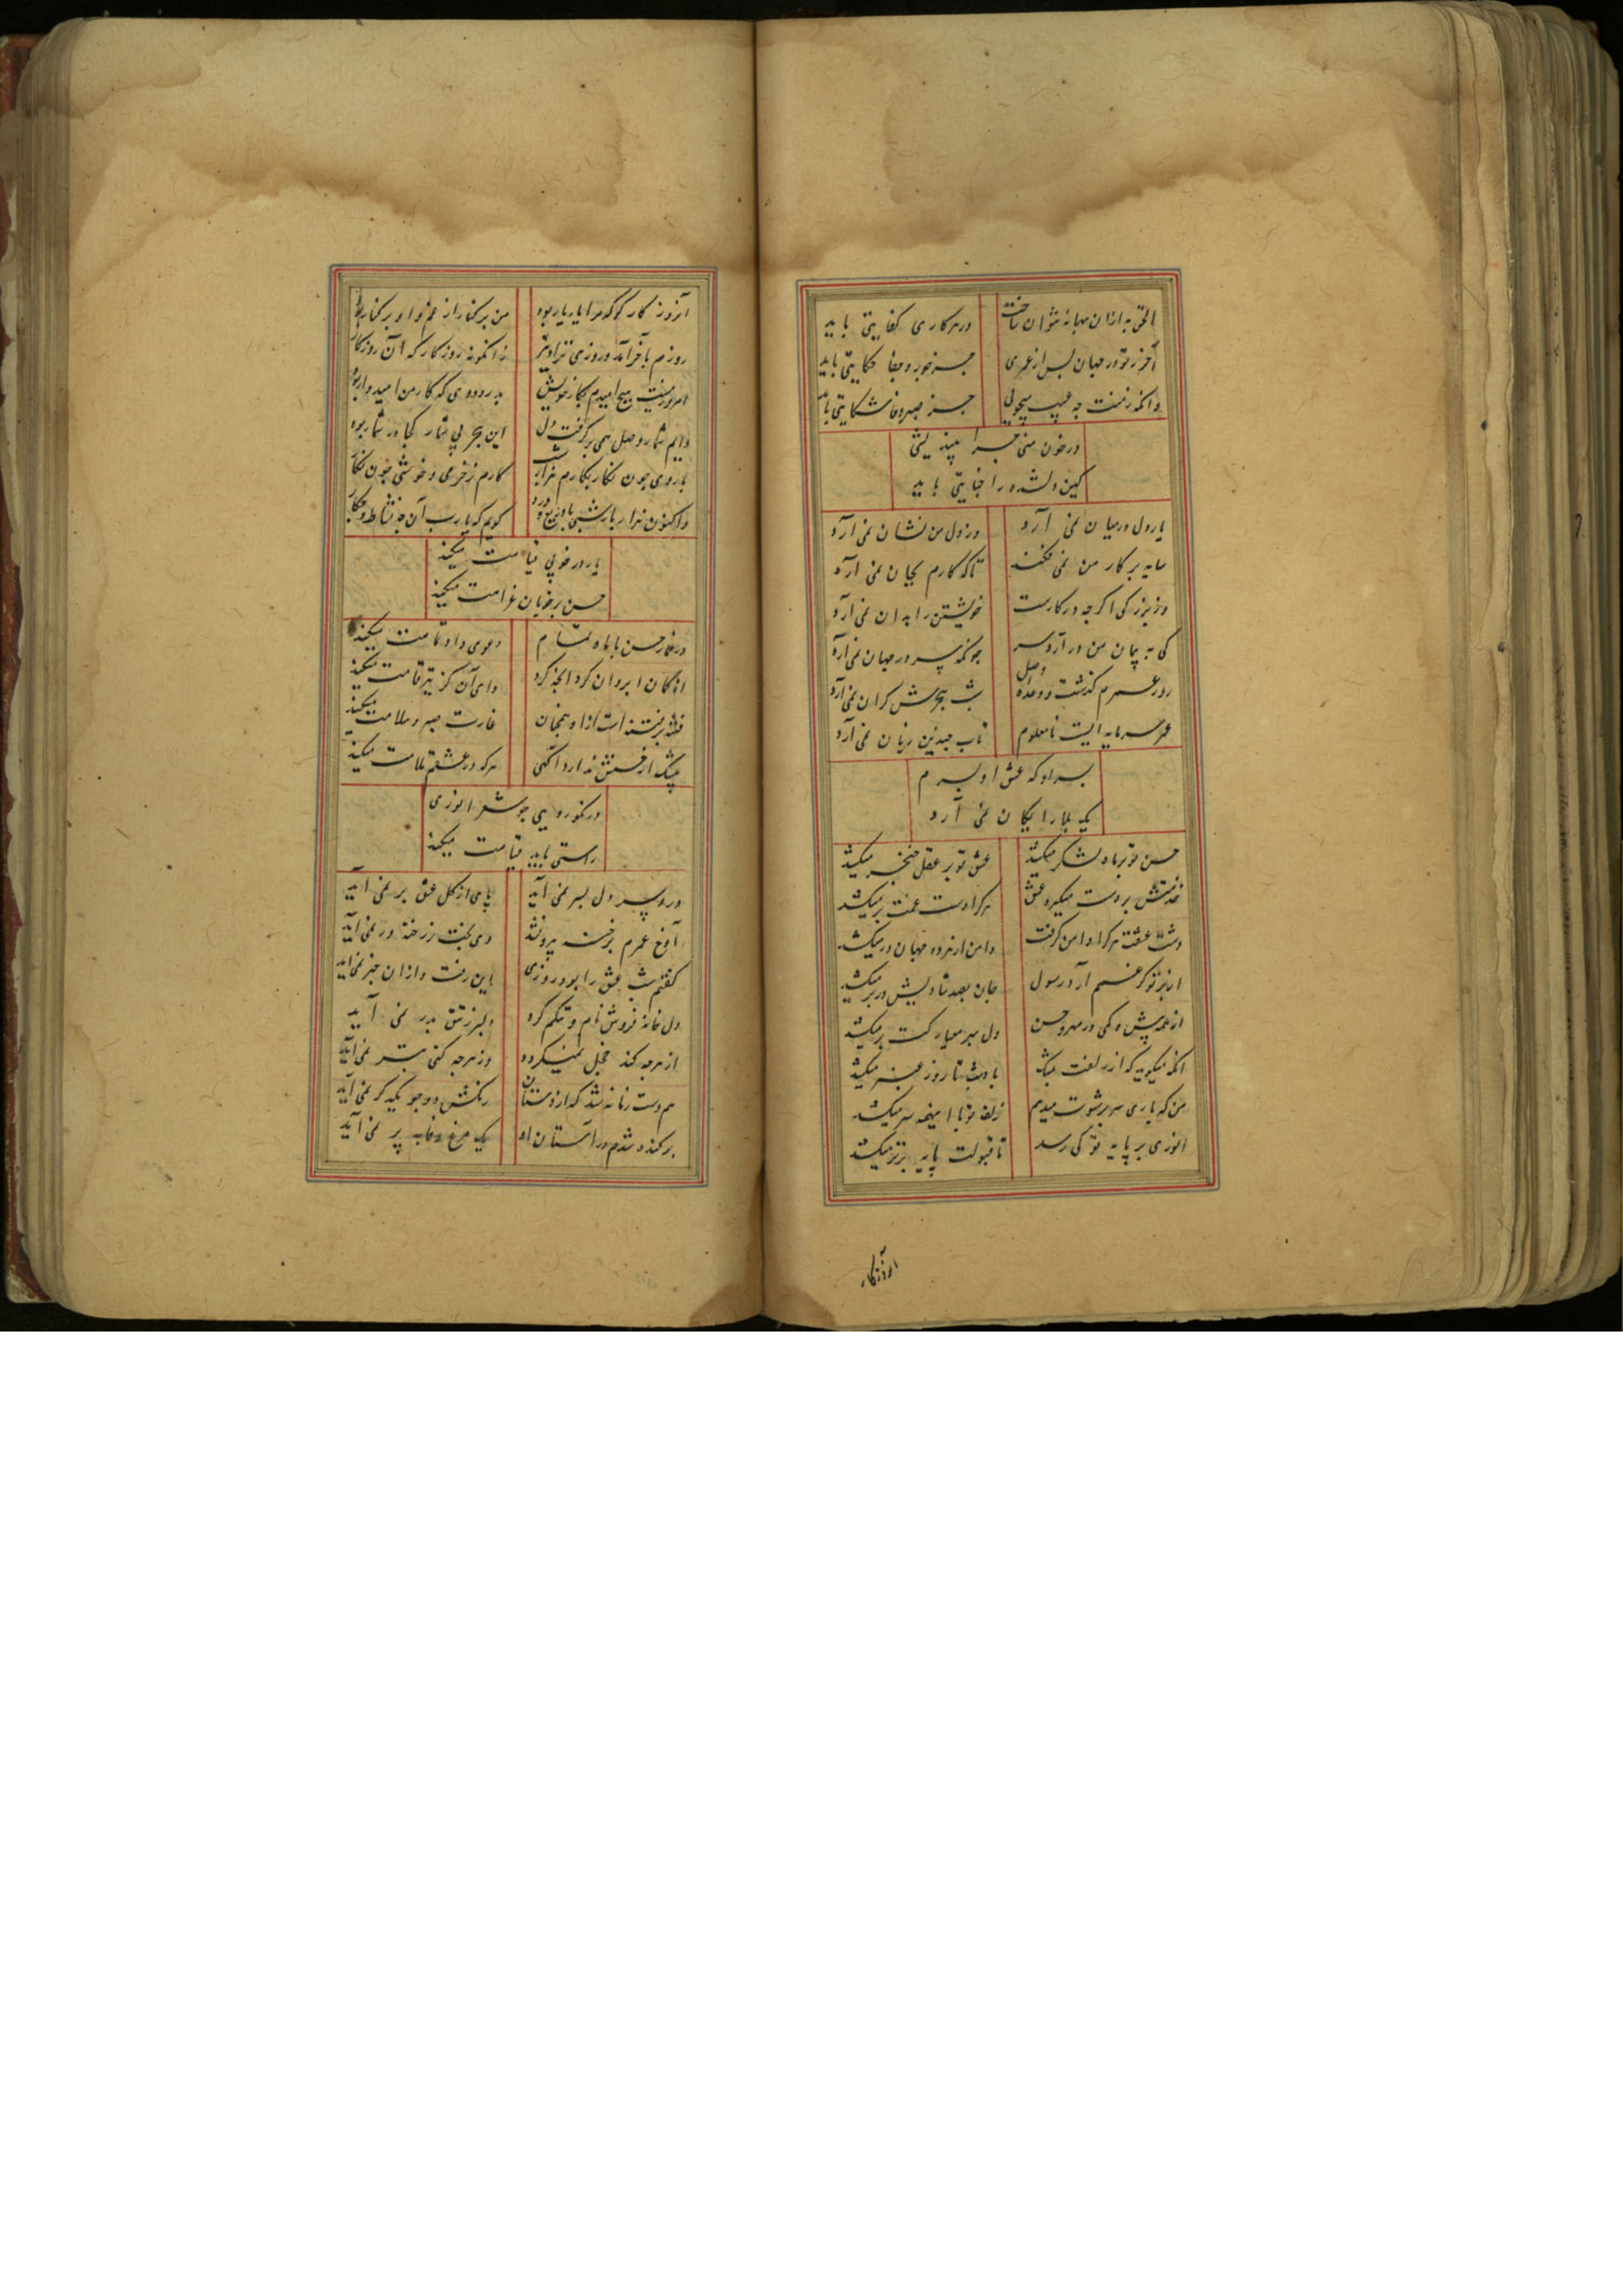 الحق به ازان بهانه نتوان ساخت در هر کاری کفایتی باید
آخر ز تو در جهان پس از عمری جز جور و جفا حکایتی باید
وانکه ز منت چه عیب میجویی جز صبر و وفا شکایتی باید
در خون منی چرا نیندیشی
کین دلشده را جنایتی باید
یار دل در میان نمی آرد وز دل من نشان نمی آرد
سایه بر کار من نمی فکند تا که کارم بجان نمی آرد
وز بزرگی اگرچه در کارست خویشتن را بدان نمی آرد
کی به پیمان من درآرد سر چونکه سر در جهان نمی آرد
روز عمرم گذشت و وعده وصل شب هجرش کران نمی آرد
عمر سرمایه ایست نامعلوم تاب چندین زیان نمی آرد
بسر او که عشق او بسرم
یک بلا رایگان نمی آرد
حسن تو بر ماه لشکر میکشد عشق تو بر عقل خنجر میکشد
خدمتش بر دست میگیرد عشق هرکرا دست غمت بر میکشد
دست عشقت هرکرا دامن گرفت دامن از هر دو جهان در میکشد
از بر تو گر غم آرد رسول جان بصد شادیش در بر میکشد
از تو پیش مه کمی در مهر و حسن دل بمعیارت برمیکشد
آنکه میگوید که از زلفت بمشک باد شب تا روز عنبر میکشد
من که باری سر برشوت میدهم زلف تو با این همه سر میکشد
انوری بر پایه تو کی رسد تا قبولت پایه برتر میکشد
آنروزگار
آنروزگار کو که مرا یار یار بود من بر کنار از غم و او بر کنار بود
روزم بآخر آمد و روزی نزاد نیز زانگونه روزگار که آن روزگار بود
امروز نیست هیچ امیدم بکار خویش بدرود دی که کار من امیدوار بود
دایم شمار وصل همی برگرفت دل این هجر بی شمار کجا در شمار بود
با روی چون نگار نگارم هزار شب کارم ز خرمی و خوشی چون نگار بود
واکنون هزار بار شبی با دریغ و درد گویم که یارب آن چه نشاط و چکار بود
یار در خوبی قیامت میکند
حسن بر خوبان غرامت میکند
در قمار حسن با ماه تمام دعوی داو تمامت میکند
از کمان ابروان کرد آنچه کرد وای آن کز تیر قامت میکند
فتنه بر فتنه است ازو و همچنان غارت صبر و سلامت میکند
بیشک از حسنش ندارد آگهی هرکه در عشقم ملامت میکند
در نکورویی چو شعر انوری
راستی باید قیامت میکند
درد سر دل بسر نمی آید پای از گل عشق بر نمی آید
آوخ عمرم برخنه بیرون شد وین بخت ز رخنه در نمی آید
گفتم شب عشق را بود روزی این رفت وزان خبر نمی آید
دل خانه فروش نام و ننگم کرد دلبر ز تتق بدر نمی آید
از هرچه کند خجل نمیگردد وز هرچه کنی بتر نمی آید
هم دست زمانه شد که از دستان رنگش دو چو یکدگر نمی آید
برکنده شدم در آستان او یک مرغ وفا به پر نمی آید